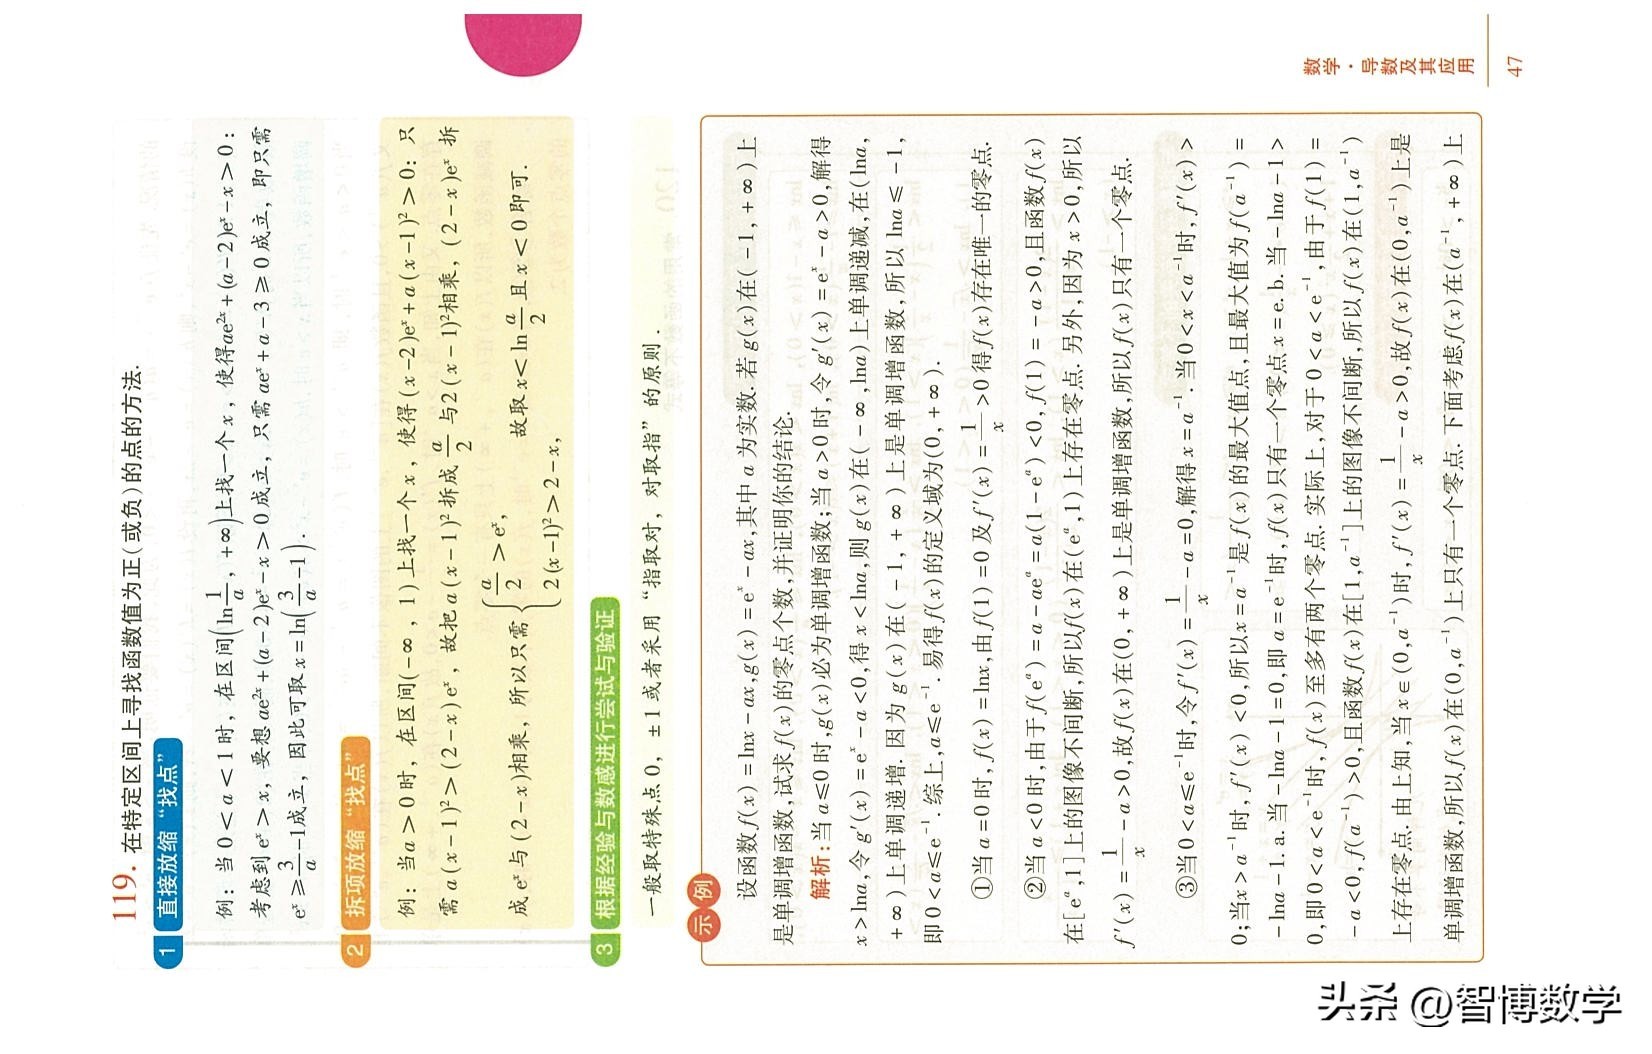 119. 在特定区间上寻找函数值为正(或负)的点的方法.
1 直接放缩“找点”
例：当0<a<1时，在区间(ln 1/a，+∞)上找一个x，使得ae^{2x}+(a-2)e^x-x>0：
考虑到e^x>x，要想ae^{2x}+(a-2)e^x-x>0成立，只需ae^x+a-3≥0成立，即只需
e^x≥3/a-1成立，因此可取x=ln(3/a-1).
2 拆项放缩“找点”
例：当a>0时，在区间(-∞，1)上找一个x，使得(x-2)e^x+a(x-1)²>0：只
需a(x-1)²>(2-x)e^x，故把a(x-1)²拆成a/2与2(x-1)²相乘，(2-x)e^x拆
成e^x与(2-x)相乘，所以只需{a/2>e^x，2(x-1)²>2-x，故取x<ln a/2且x<0即可.
3 根据经验与数感进行尝试与验证
一般取特殊点0，±1或者采用“指取对，对取指”的原则.
示例
设函数f(x)=lnx-ax,g(x)=e^x-ax,其中a为实数.若g(x)在(-1,+∞)上
是单调增函数,试求f(x)的零点个数,并证明你的结论.
解析:当a≤0时,g(x)必为单调增函数;当a>0时,令g′(x)=e^x-a>0,解得
x>lna,令g′(x)=e^x-a<0,得x<lna,则g(x)在(-∞,lna)上单调递减,在(lna,
+∞)上单调递增.因为g(x)在(-1,+∞)上是单调增函数,所以lna≤-1,
即0<a≤e^{-1}.综上,a≤e^{-1}.易得f(x)的定义域为(0,+∞).
①当a=0时,f(x)=lnx,由f(1)=0及f′(x)=1/x>0得f(x)存在唯一的零点.
②当a<0时,由于f(e^a)=a-ae^a=a(1-e^a)<0,f(1)=-a>0,且函数f(x)
在[e^a,1]上的图像不间断,所以f(x)在(e^a,1)上存在零点.另外,因为x>0,所以
f′(x)=1/x-a>0,故f(x)在(0,+∞)上是单调增函数,所以f(x)只有一个零点.
③当0<a≤e^{-1}时,令f′(x)=1/x-a=0,解得x=a^{-1}.当0<x<a^{-1}时,f′(x)>
0;当x>a^{-1}时,f′(x)<0,所以x=a^{-1}是f(x)的最大值点,且最大值为f(a^{-1})=
-lna-1.a.当-lna-1=0,即a=e^{-1}时,f(x)只有一个零点x=e.b.当-lna-1>
0,即0<a<e^{-1}时,f(x)至多有两个零点.实际上,对于0<a<e^{-1},由于f(1)=
-a<0,f(a^{-1})>0,且函数f(x)在[1,a^{-1}]上的图像不间断,所以f(x)在(1,a^{-1})
上存在零点.由上知,当x∈(0,a^{-1})时,f′(x)=1/x-a>0,故f(x)在(0,a^{-1})上是
单调增函数,所以f(x)在(0,a^{-1})上只有一个零点.下面考虑f(x)在(a^{-1},+∞)上
数学·导数及其应用
47
头条 @智博数学